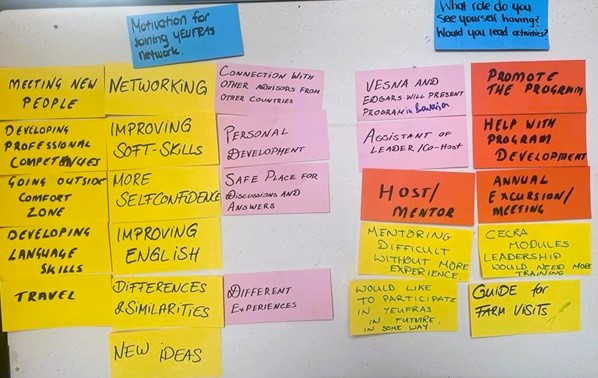 Motivation for
joining YEUFRAS
Network.
What role do you
see yourself having?
Would you lead activities?
MEETING NEW
PEOPLE
NETWORKING
CONNECTION WITH
OTHER ADVISORS FROM
OTHER COUNTRIES
DEVELOPING
PROFESSIONAL
COMPETENCES
IMPROVING
SOFT-SKILLS
PERSONAL
DEVELOPMENT
GOING OUTSIDE
COMFORT
ZONE
MORE
SELFCONFIDENCE
SAFE PLACE FOR
DISCUSSIONS AND
ANSWERS
DEVELOPING
LANGUAGE
SKILLS
IMPROVING
ENGLISH
TRAVEL
DIFFERENCES
& SIMILARITIES
DIFFERENT
EXPERIENCES
NEW IDEAS
VESNA AND
EDGARS WILL PRESENT
PROGRAM IN
PROMOTE
THE PROGRAM
ASSISTANT OF
LEADER/CO-HOST
HELP WITH
PROGRAM
DEVELOPMENT
HOST/
MENTOR
ANNUAL
EXCURSION/
MEETING
MENTORING
DIFFICULT
WITHOUT MORE
EXPERIENCE
CECRA
MODULES
LEADERSHIP
WOULD NEED MORE
TRAINING
WOULD LIKE
TO PARTICIPATE
IN YEUFRAS
IN FUTURE.
IN SOME WAY
GUIDE for
FARM VISITS